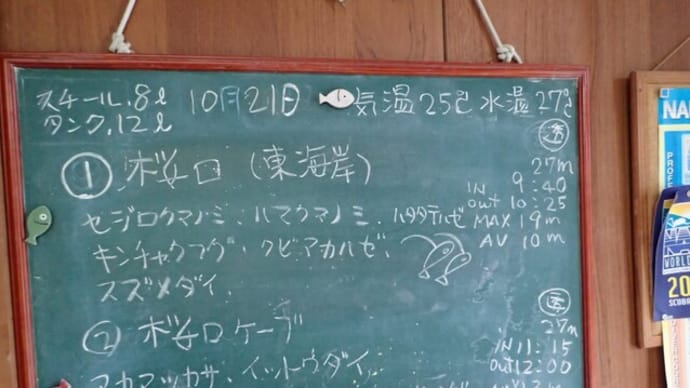 スチール.8ℓ 10月21日 気温25℃ 水温27℃
タンク.12ℓ
透
27m
① ボゼ口 (東海岸)
IN 9:40
out 10:25
セジロクマノミ、ハマクマノミ、ハタタテハゼ
MAX 19m
キンチャクフグ、クビアカハゼ、
AV 10m
スズメダイ
透
27m
② ボゼ口ケーブ
IN 11:15
アカマツカサ、イットウダイ、
out 12:00
NA
PROFE
WORLD
20
SCUBA